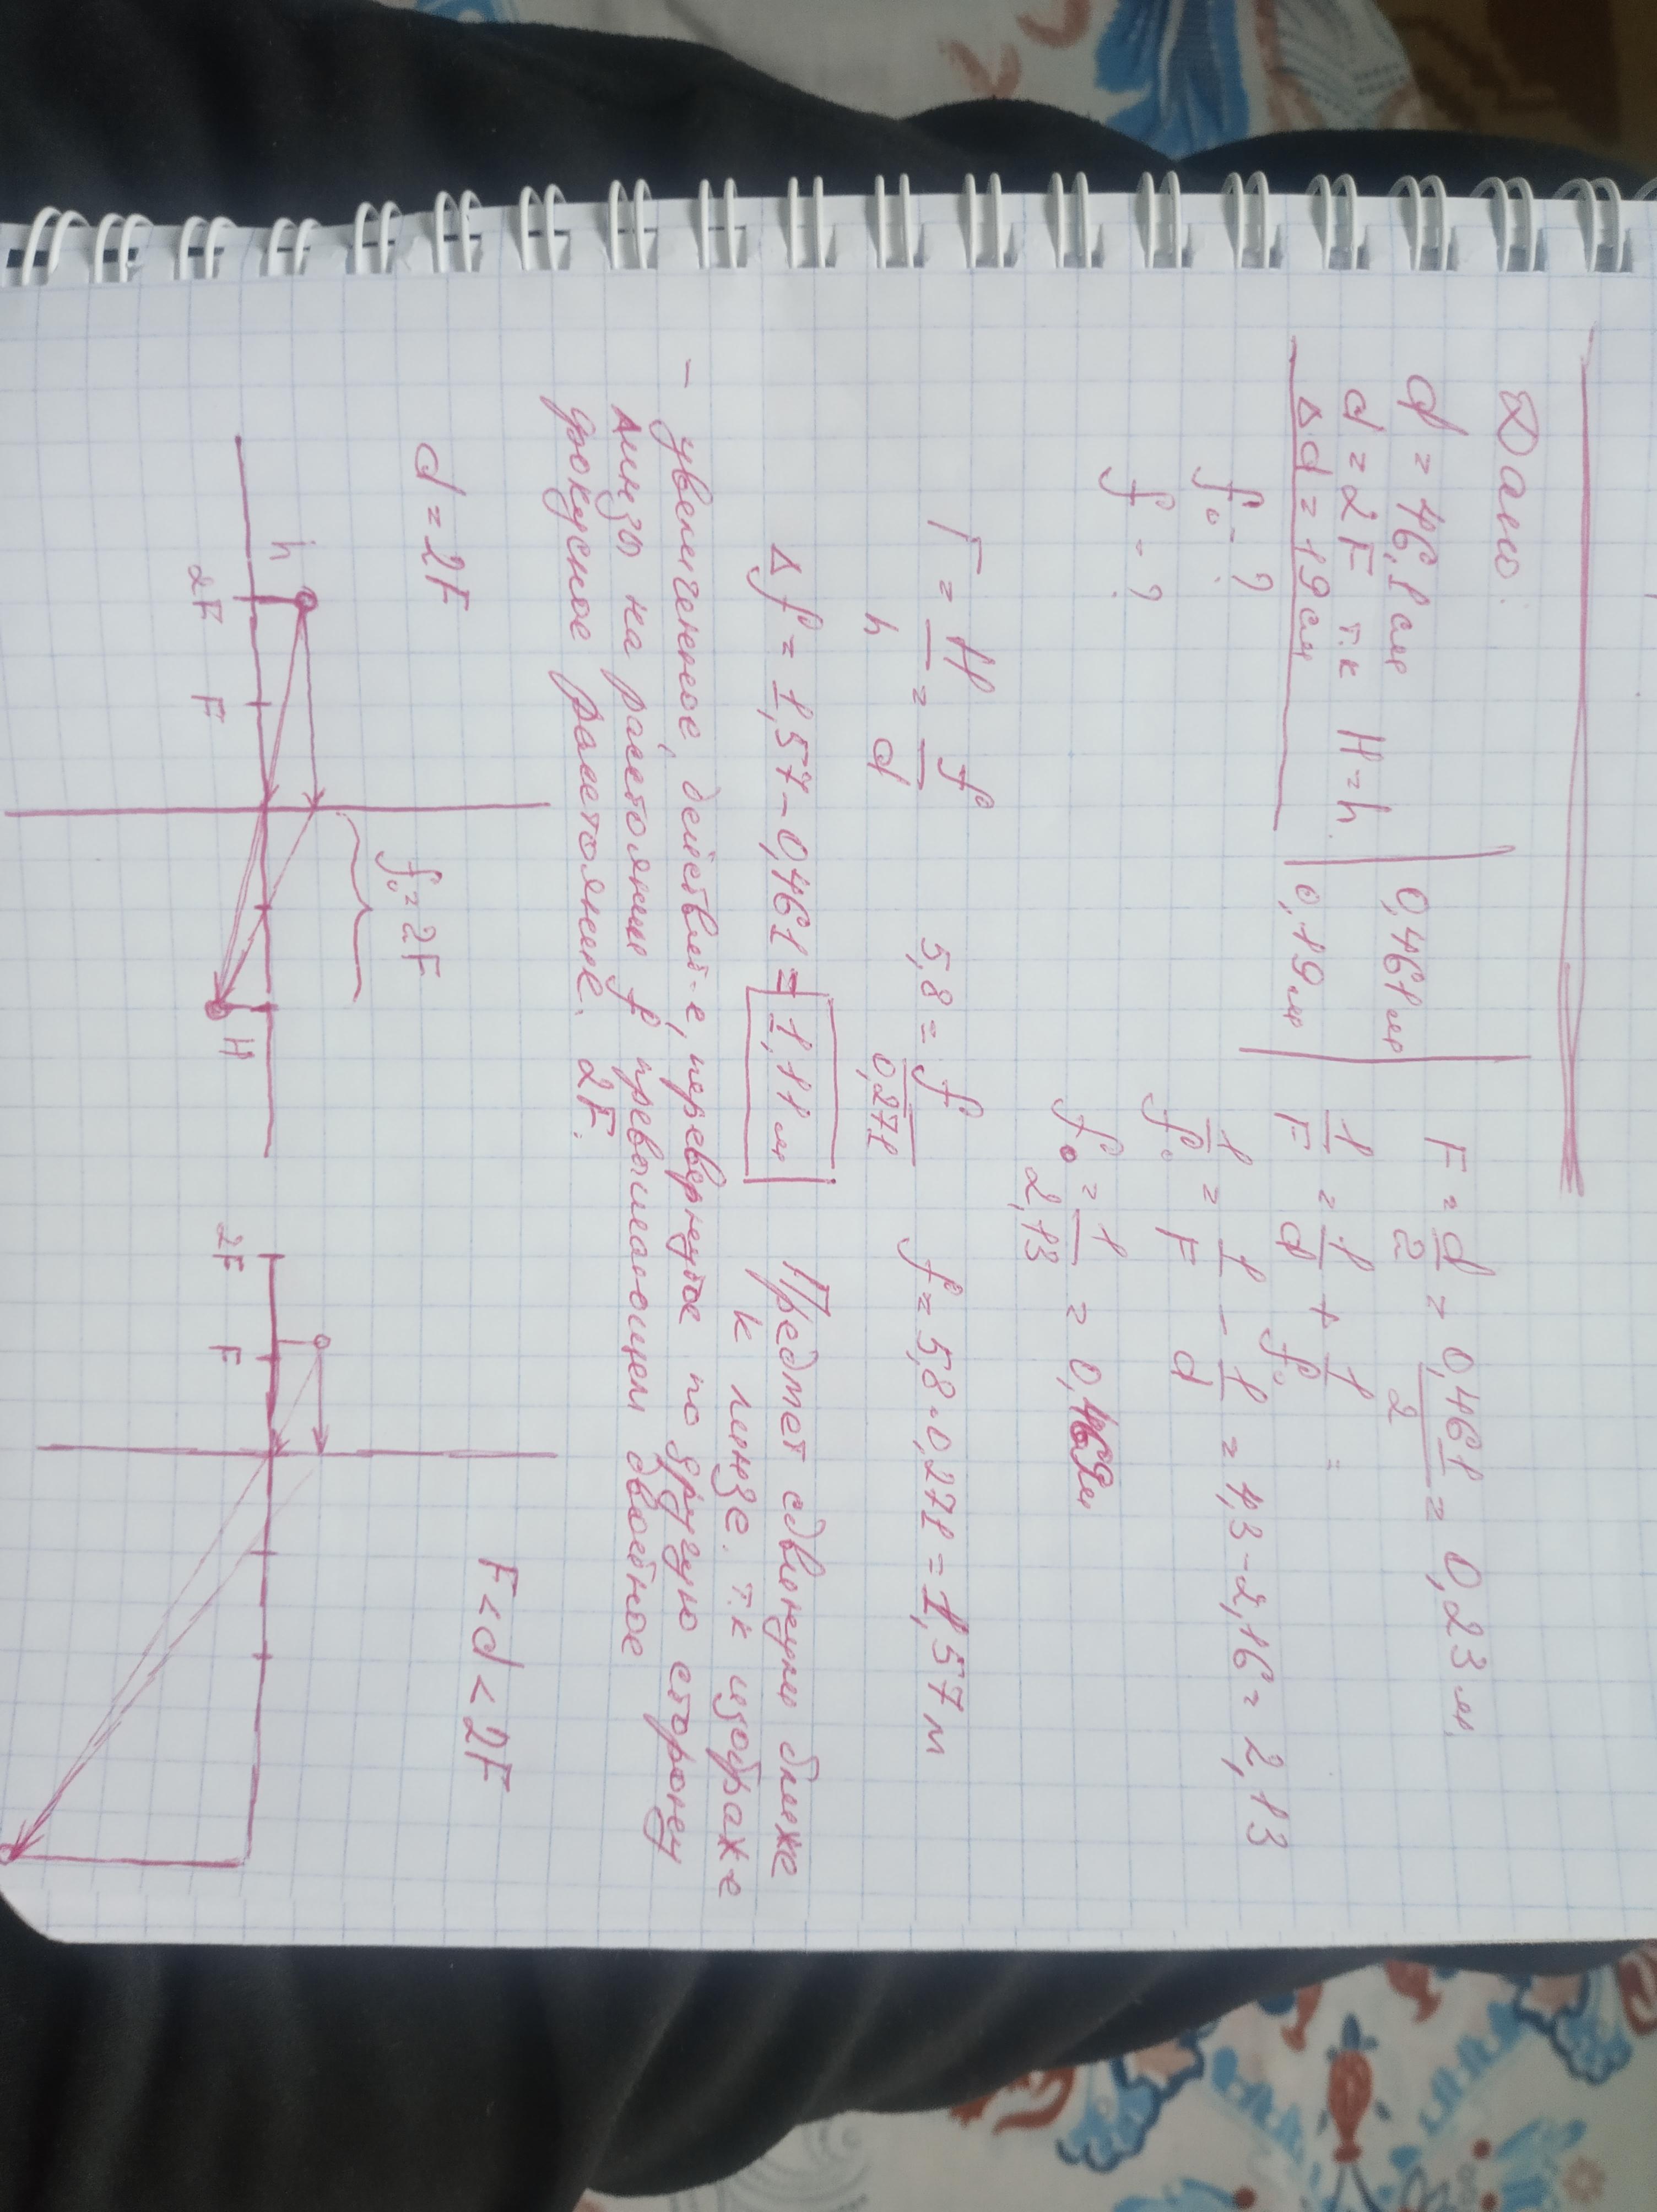 Дано:
d = 46,1 см | 0,461 м
d = 2F т.к H = h.
Δd = 19 см | 0,19 м
f₀ - ?
f - ?
F = d/2 = 0,461/2 = 0,23 м
1/F = 1/d + 1/f₀ =
1/f₀ = 1/F - 1/d = 4,3 - 2,16 = 2,13
f₀ = 1/2,13 = 0,469м
Г = H/h = f/d
5,8 = f/0,271
f = 5,8 · 0,271 = 1,57 м
Δf = 1,57 - 0,461 = 1,11 м
Предмет сдвинули ближе
к линзе. т.к изображе
- увеличенное, действит-е, перевернутое по другую сторону
линзы на расстоянии f превышающем двойное
фокусное расстояние. 2F.
d = 2F
f₀ = 2F
h
2F
F
H
F < d < 2F
2F
F